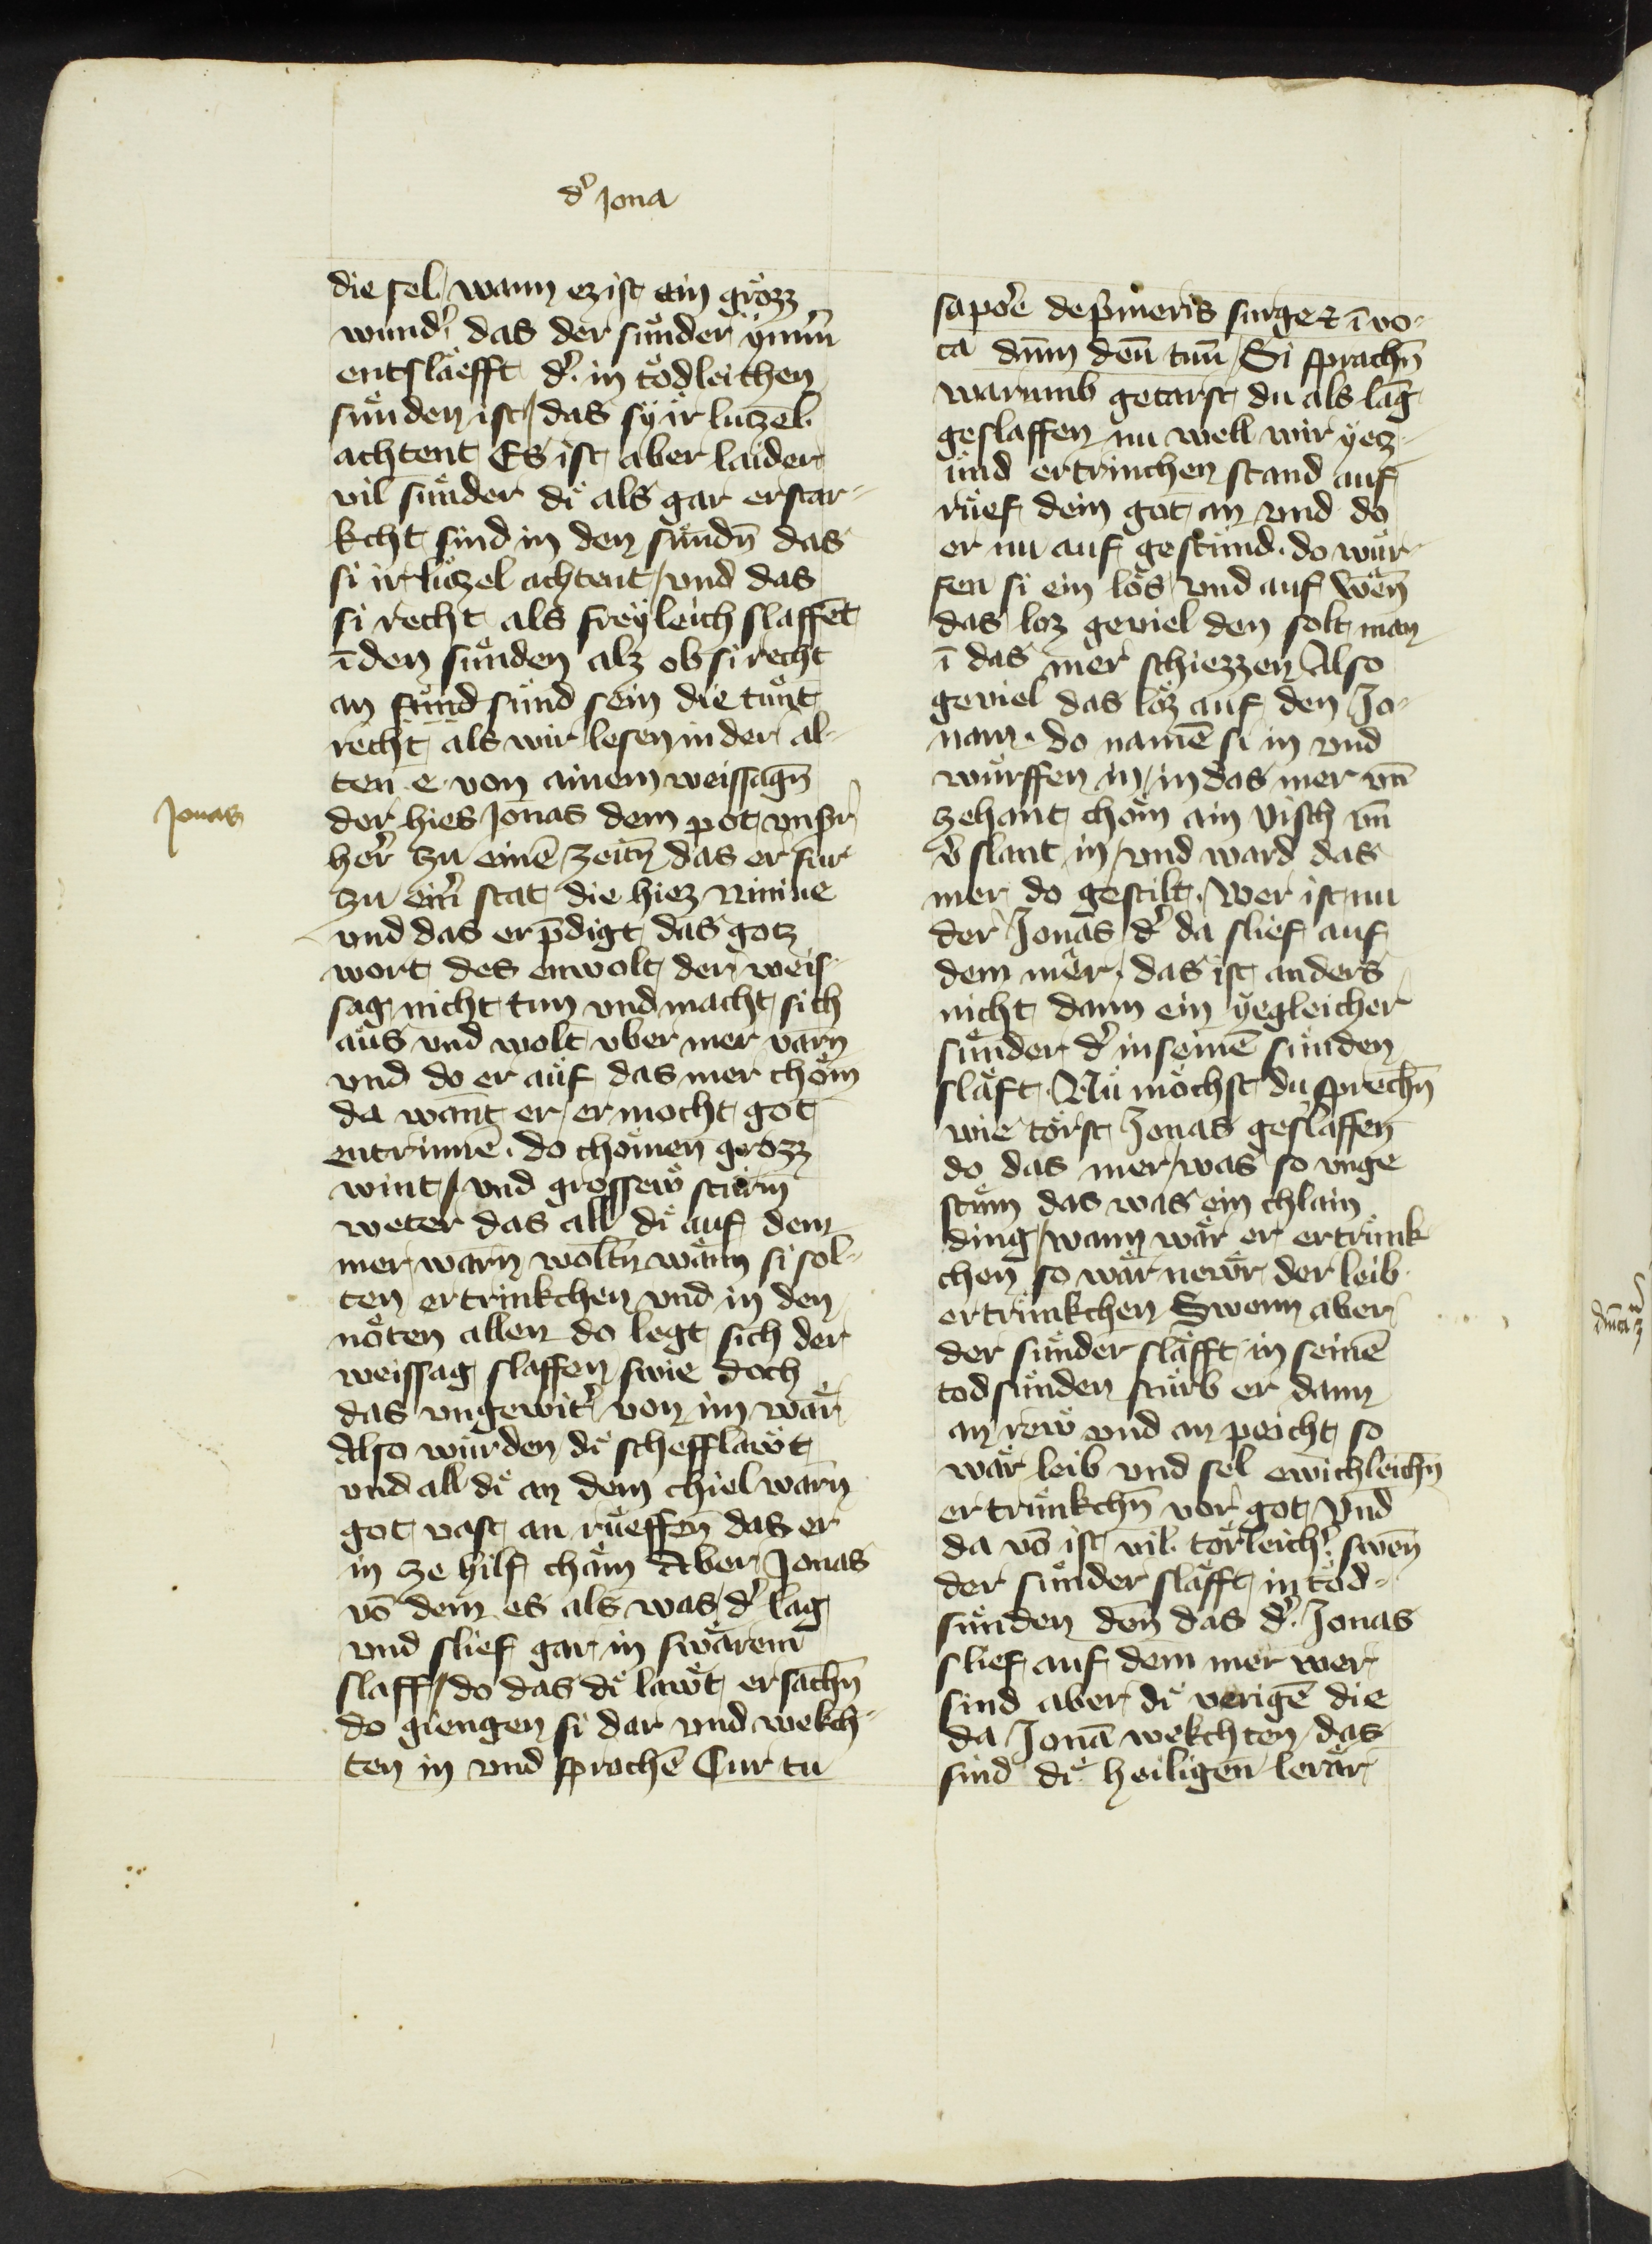 dͤ Jona
die sel / wann ez ist ain grözz
wundͤ das der sünder ymm̄
entslaefft dͤ in tödleichen
sünden ist / das sy ir luczel
achtent Es ist aber laider
vil sünder dï als gar erstar-
kcht sind in den sündn̄ das
si ir lüczel achtent / vnd das
si recht als freyleich slaffēt
ī den sünden alz ob si recht
an sünd sein die tünt
recht als wir lesen in der al-
ten e von ainem weissagn̄
der hies Jonas dem pot vnsͤ
Jonas
herͤ zu einē zeitn̄ das er fur
zu einͤ stat die hiez Niniue
vnd das er p̄digt das gotz
wort des enwolt der weis-
sag nicht tun vnd macht sich
aus vnd wolt vber mer varn̄
vnd do er auf das mer chöm
da want er / er mocht got
entrinnē . do chömen grozz
wint / vnd grossew sturm
weter das all dï auf dem
mer warn̄ woltn̄ wänn si sol-
ten ertrinkchen vnd in den
nöten allen do legt sich der
weissag slaffen swie doch
das vngewitͤ von im wär
Also wurden dï schefflawt
vnd all dï an dem chiel warn̄
got vast an rüeffen das er
in ze hilf chäm Aber Jonas
vō dem es als was / dͤ lag
vnd slief gar in swärem
slaff / do das dï lawt ersachn̄
do giengen si dar vnd wekch-
ten in vnd sprachē Cur tu
sapoͤe dep̄meris surge ⁊ ī vo-
ca dn̄m deū tuū / Si sprachn̄
warumb getarst du als lāg
geslaffen nu well wir yecz-
und ertrinchen stand auf
rüef dein got an vnd do
er nu auf gestund . do wur-
fen si ein lös / vnd auf wēn
das loz geuiel den solt man
ī das mer schiezzen Also
geuiel das löz auf den Jo-
nam . do namē si in vnd
würffen in / in das mer vn̄
zehant chöm ain Visch vn̄
v̄slant in / vnd ward das
mer do gestilt . wer ist nu
der Jonas dͤ da slief auf
dem mer . das ist anders
nicht dann ein yegleicher
sünder dͤ in seinē sünden
släft . Nu möchst du sprechn̄
wie törst Jonas geslaffen
do das mer / was so vnge
stüm das was ein chlain
ding / wann wär er ertrunk
chen so wär newr der leib
ertrunkchen Swenn aber
der sünder släfft in seinē
tod sünden stürb er dann
an rew vnd an peicht so
wär leib vnd sel ewichleichn̄
ertrunkchn̄ vor got / Vnd
da vō ist vil törleichͤ swen̄
der sünder släfft in tod-
sünden den̄ das dͤ Jonas
slief auf dem mer wer
sind aber dï verigē die
da Jonā wekchten / das
sind dï heiligen lerär